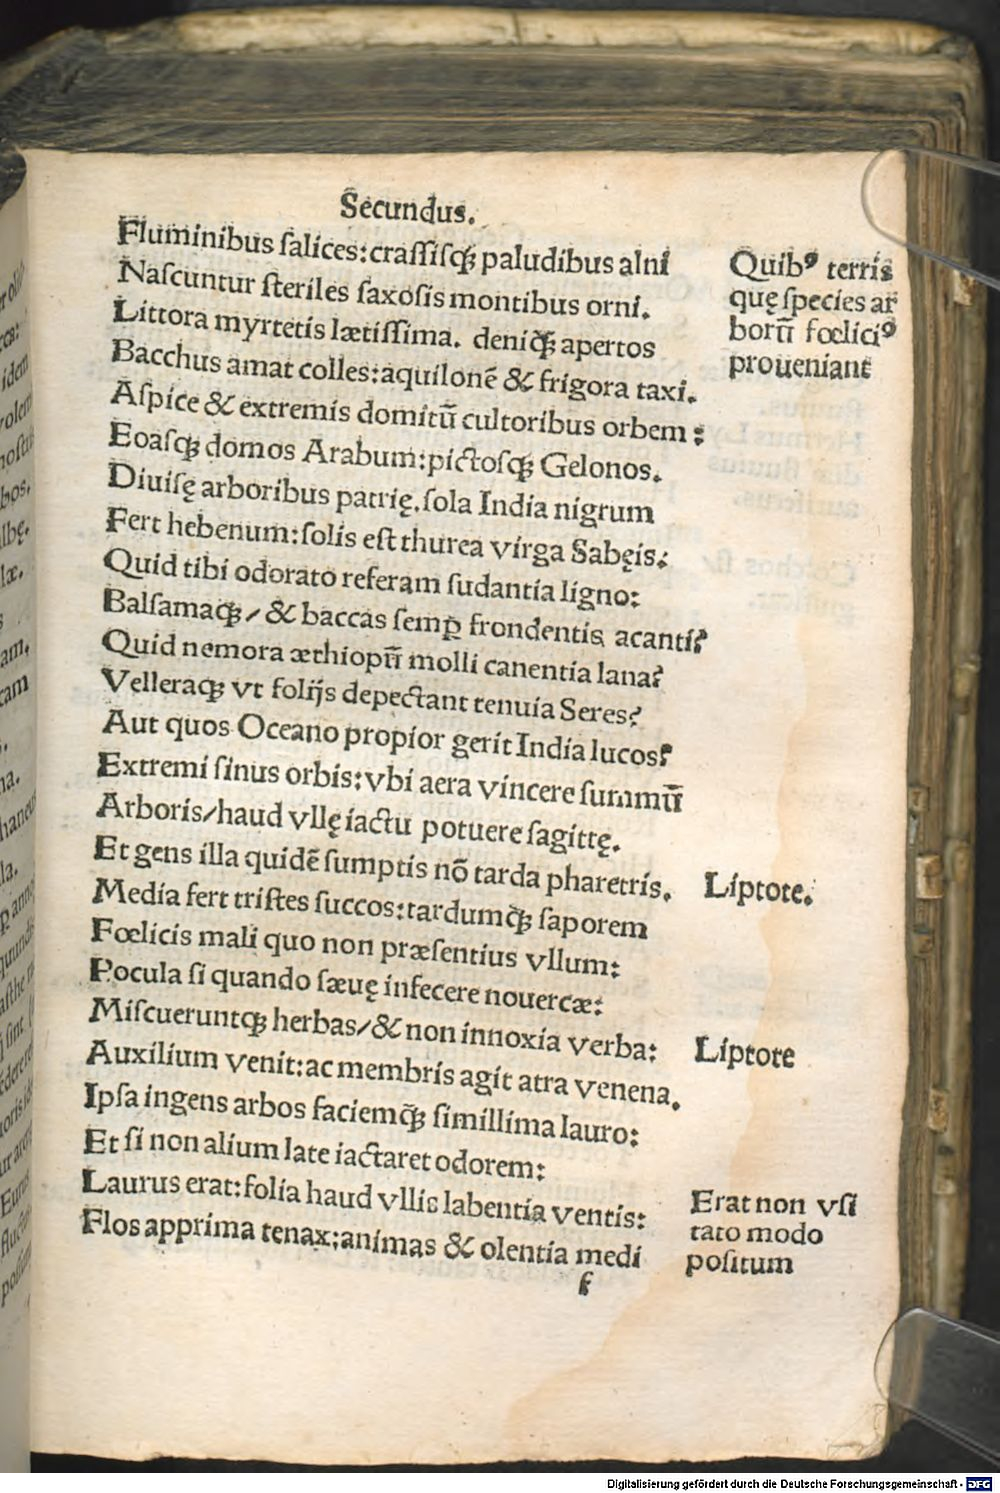 Secundus.
Fluminibus ſalices:craſſiſqꝫ paludibus alni
Naſcuntur ſteriles ſaxoſis montibus orni.
Littora myrtetis lætiſſima. deniqꝫ̃ apertos
Bacchus amat colles:aquilonē & frigora taxi.
Aſpice & extremis domitū cultoribus orbem:
Eoaſqꝫ domos Arabum:pictoſqꝫ Gelonos.
Diuiſę arboribus patrię.ſola India nigrum
Fert hebenum:ſolis eſt thurea virga Sabęis:
Quid tibi odorato referam ſudantia ligno:
Balſamaqꝫ/& baccas ſemꝑ frondentis acanti?
Quid nemora æthiopū molli canentia lana?
Velleraqꝫ vt folijs depectant tenuia Seres?
Aut quos Oceano propior gerit India lucos?
Extremi ſinus orbis:vbi aera vincere ſummū
Arboris/haud vllę iactu potuere ſagittę.
Et gens illa quidē ſumptis nō tarda pharetris.
Media fert triſtes ſuccos:tardumqꝫ̃ ſaporem
Fœlicis mali quo non præſentius vllum:
Pocula ſi quando ſæuę infecere nouercæ:
Miſcueruntqꝫ herbas/& non innoxia verba:
Auxilium venit:ac membris agit atra venena.
Ipſa ingens arbos faciemqꝫ̃ ſimillima lauro:
Et ſi non alium late iactaret odorem:
Laurus erat:folia haud vllis labentia ventis:
Flos apprima tenax:animas & olentia medi
f
Quibꝰ terris
quę ſpecies ar
borū fœliciꝰ
proueniant
Liptore.
Liptore
Erat non vſi
tato modo
poſitum
Digitalisierung gefördert durch die Deutsche Forschungsgemeinschaft - DFG